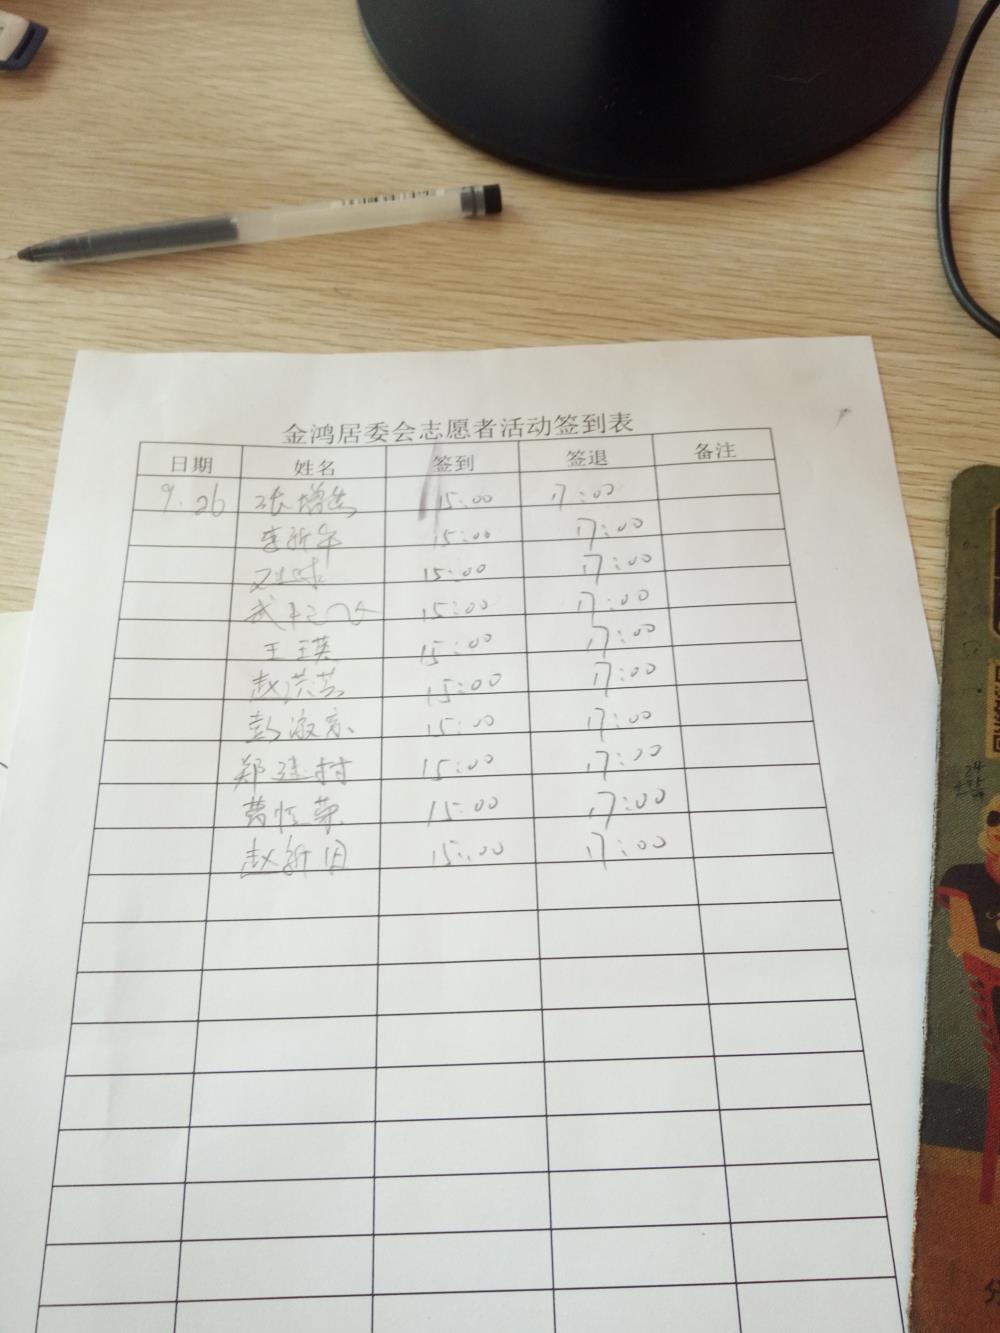 金鸿居委会志愿者活动签到表
日期 姓名 签到 签退 备注
9.26 张增 15:00 17:00
李新年 15:00 17:00
15:00 17:00
武 15:00 17:00
王玉英 15:00 17:00
赵洪 15:00 17:00
彭淑 15:00 17:00
郑建村 15:00 17:00
曹恒荣 15:00 17:00
赵新 15:00 17:00